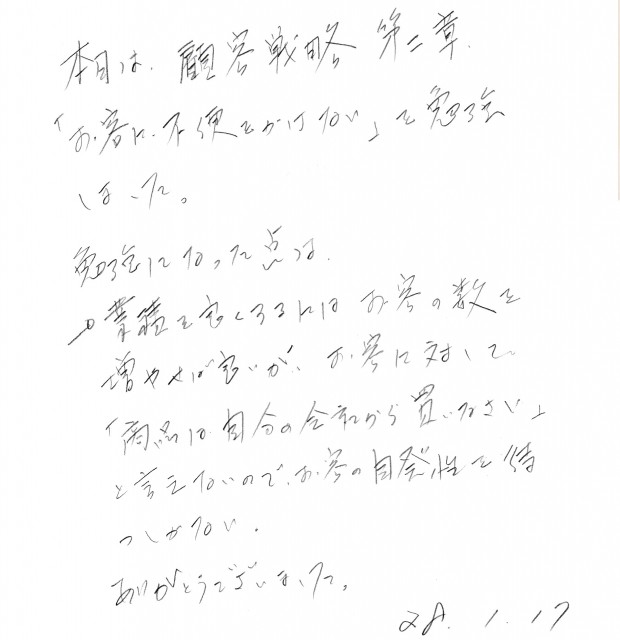 本日は、顧客戦略 第二章
「お客に不便をかけない」を勉強
しました。
勉強になった点は、
→業績を良くするには お客の数を
増やせば良いが、お客に対して、
「商品は自分の会社から買いなさい」
と言えないので、お客の自発性を待
つしかない。
ありがとうございました。
28. 1. 17